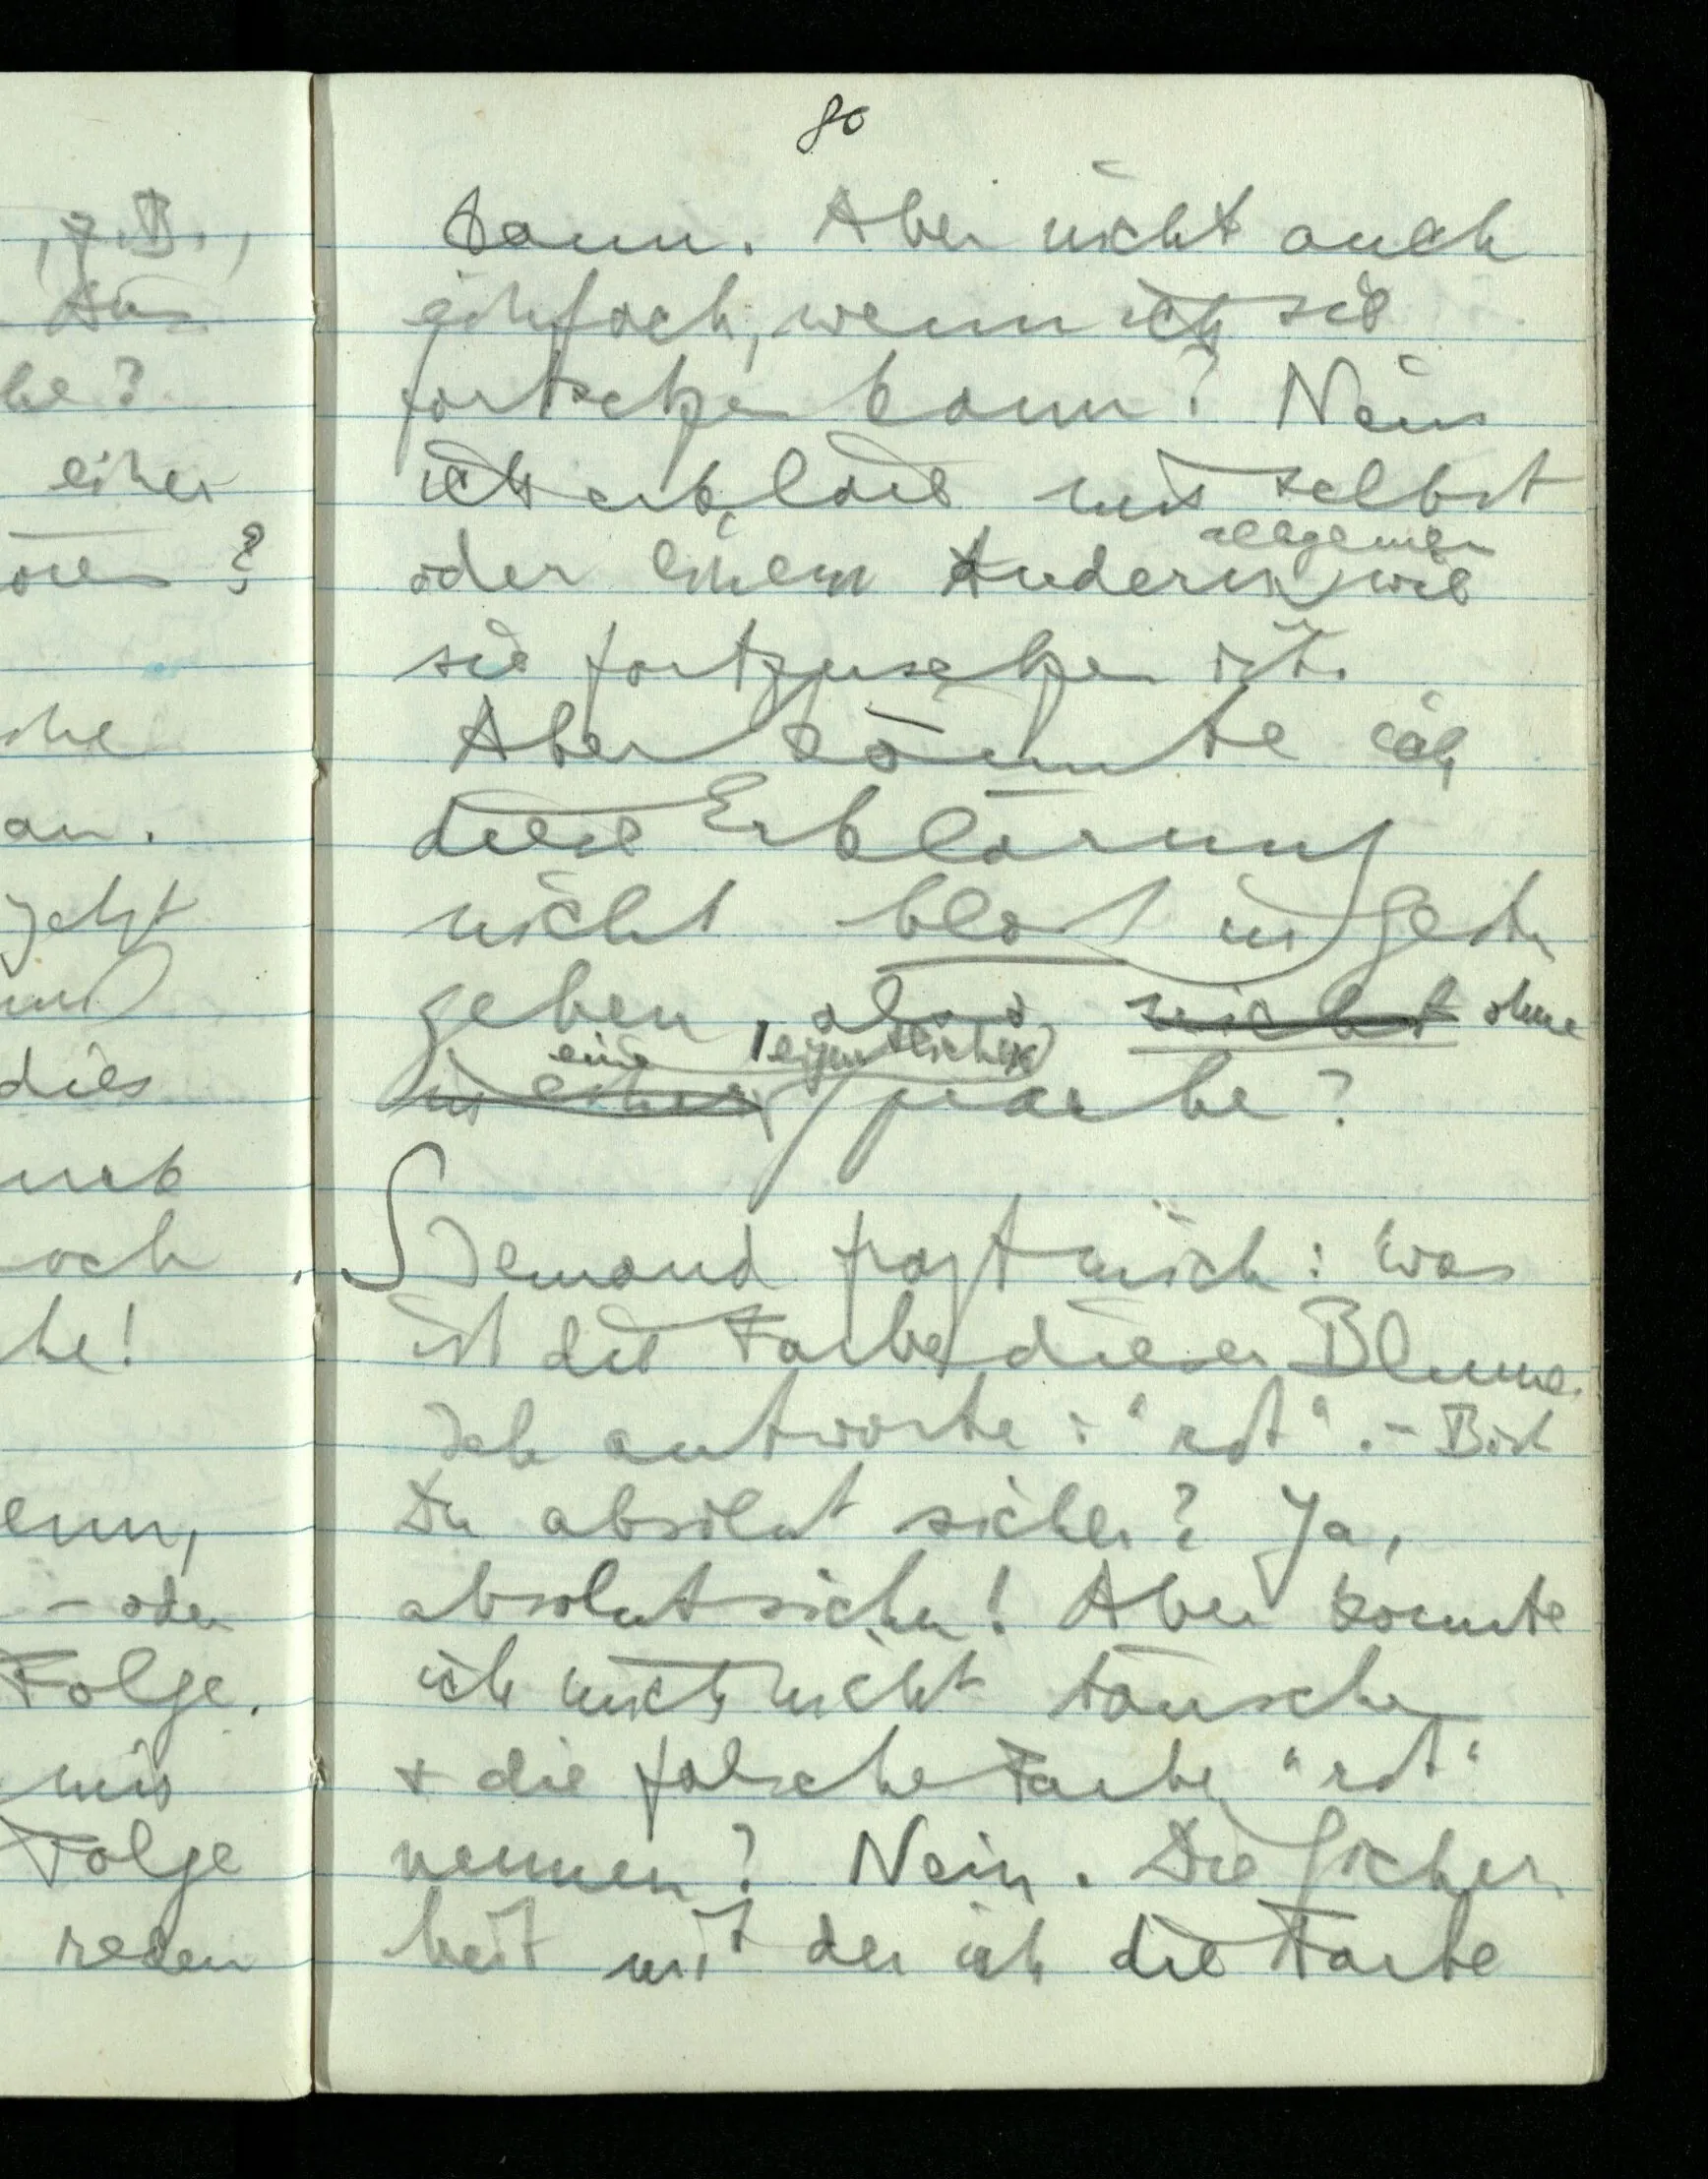 , z.B.,
be?
einer
?
an.
jetzt
dies
och
he!
enn,
– oder
Folge.
mir
Folge
reden
80
kann. Aber nicht auch
einfach, wenn ich sie
fortsetzen kann? Nein
ich erkläre mir selbst
allgemein
oder einem Andern wie
sie fortzusetzen ist.
Aber könnte ich
diese Erklärung
nicht bloß in Gesten
geben, also nicht ohne
eine eigentliche
in einer Sprache?
S Jemand fragt mich: Was
ist die Farbe dieser Blume.
Ich antworte: "rot". – Bist
Du absolut sicher? Ja,
absolut sicher! Aber konnte
ich mich nicht täuschen
+ die falsche Farbe "rot"
nennen? Nein. Die Sicher
heit mit der ich die Farbe